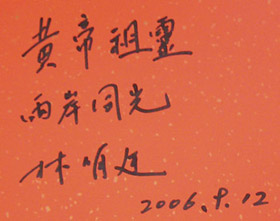 黄帝祖靈
兩岸同光
林明廷
2006.9.12